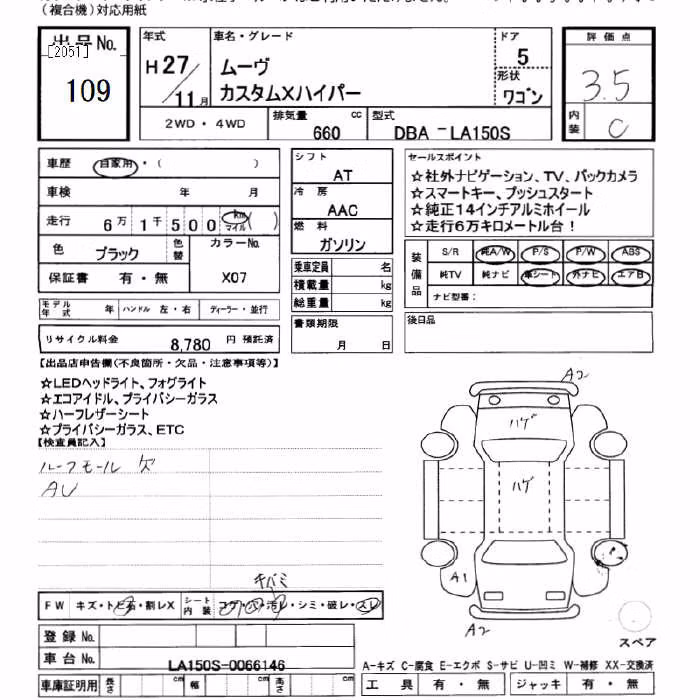 （複合機）対応用紙
出品No.
[2051]
109
年式
H 27/11月
車名・グレード
ムーヴ
カスタムXハイパー
ドア
5
形状
ワゴン
評価点
3.5
内装
C
2WD・4WD
排気量 660 cc
型式 DBA -LA150S
車歴 自家用・（ ）
車検 年 月
走行 6万 1千 5 0 0 km マイル ( )
色 ブラック 色替
カラーNo.
X07
保証書 有・無
モデル年式 年 ハンドル 左・右 ディーラー・並行
リサイクル料金 8,780 円 預託済
シフト
AT
冷房
AAC
燃料
ガソリン
乗車定員 名
積載量 kg
総重量 kg
書類期限
月 日
セールスポイント
☆社外ナビゲーション、TV、バックカメラ
☆スマートキー、プッシュスタート
☆純正14インチアルミホイール
☆走行6万キロメートル台！
装備品
S/R 純A/W P/S P/W ABS
純TV 純ナビ 革シート 外ナビ エアB
ナビ型番：
後日品
【出品店申告欄(不良箇所・欠品・注意事項等)】
☆LEDヘッドライト、フォグライト
☆エコアイドル、プライバシーガラス
☆ハーフレザーシート
☆プライバシーガラス、ETC
【検査員記入】
ルーフモール ズ
AU
A2
ハゲ
ハゲ
A1
A2
スペア
キバミ
FW キズ・トビ石・割レX
シート内装 コゲ・穴・汚レ・シミ・破レ・スレ
登録No.
車台No. LA150S-0066146
車庫証明用 長さ cm 幅 cm 高さ cm
A-キズ C-腐食 E-エクボ S-サビ U-凹ミ W-補修 XX-交換済
工具 有・無 ジャッキ 有・無